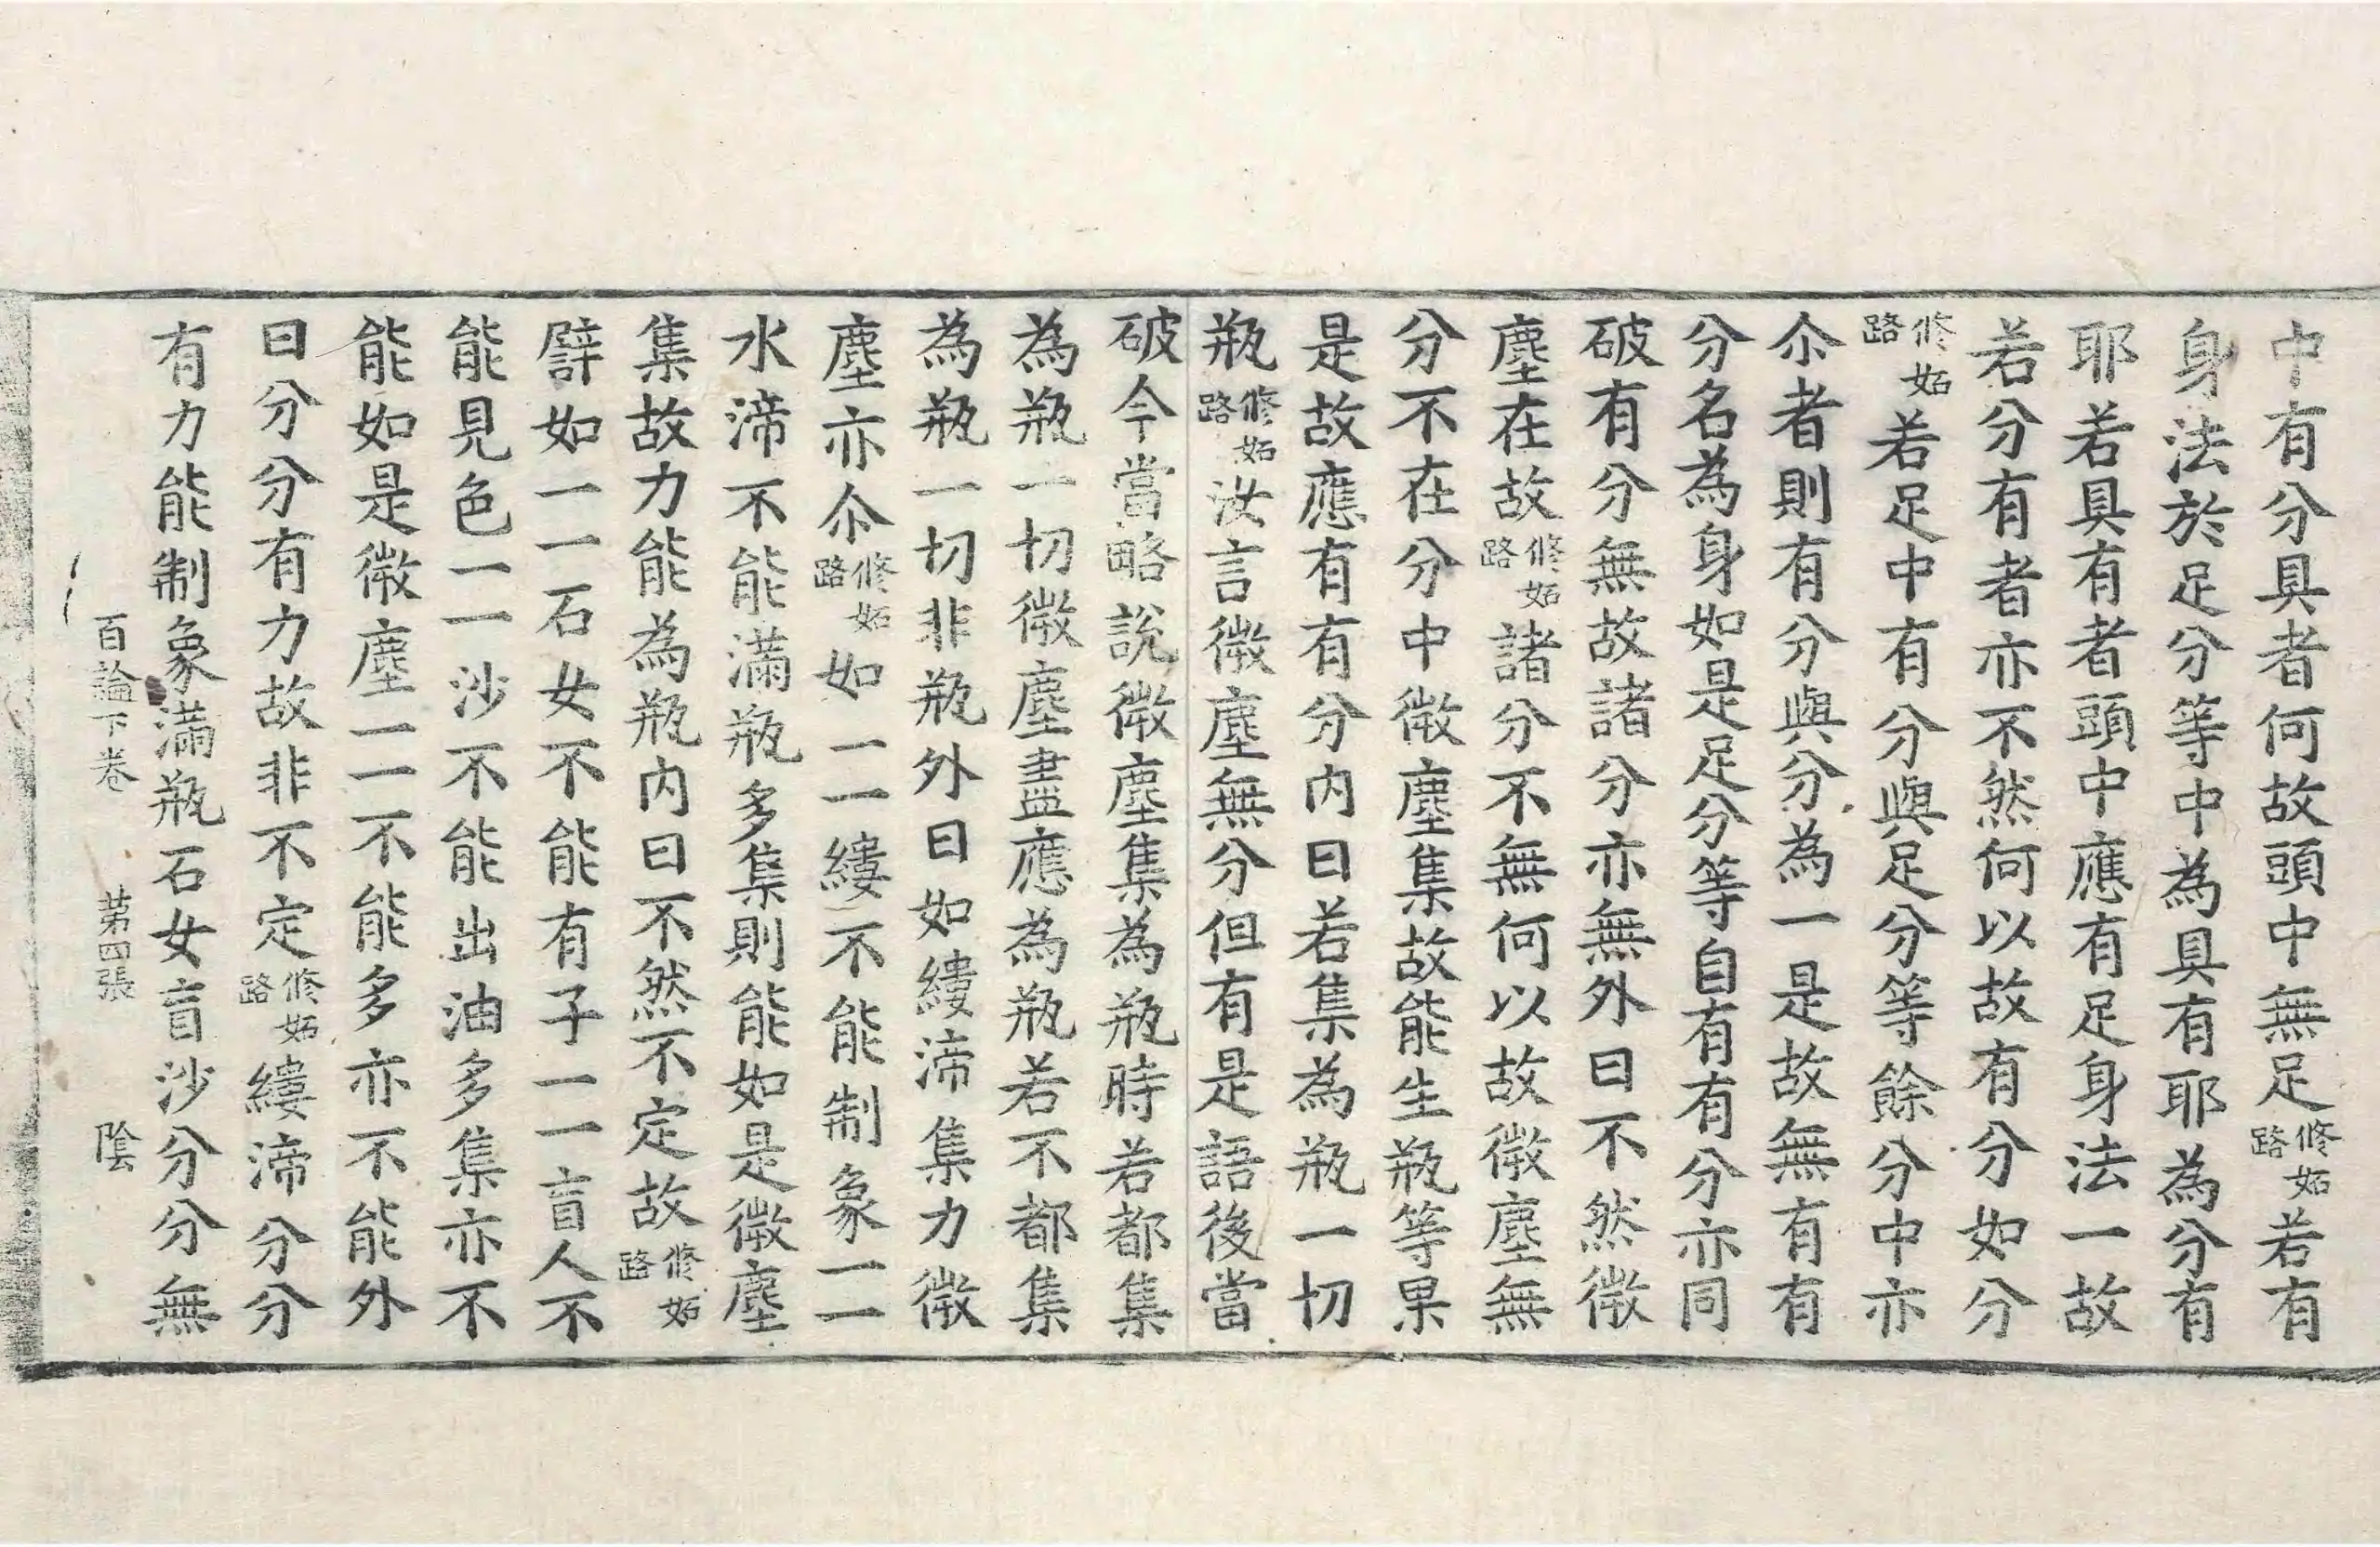 中有分具者何故頭中無足修妬路若有
身法於足分等中為具有耶為分有
耶若具有者頭中應有足身法一故
若分有者亦不然何以故有分如分
修妬路若足中有分與足分等餘分中亦
尒者則有分與分為一是故無有有
分名為身如是足分等自有有分亦同
破有分無故諸分亦無外曰不然微
塵在故修妬路諸分不無何以故微塵無
分不在分中微塵集故能生瓶等果
是故應有有分內曰若集為瓶一切
瓶修妬路汝言微塵無分但有是語後當
破今當略說微塵集為瓶時若都集
為瓶一切微塵盡應為瓶若不都集
為瓶一切非瓶外曰如縷渧集力微
塵亦尒修妬路如一一縷不能制象一一
水渧不能滿瓶多集則能如是微塵
集故力能為瓶內曰不然不定故修妬路
譬如一一石女不能有子一一盲人不
能見色一一沙不能出油多集亦不
能如是微塵一一不能多亦不能外
曰分分有力故非不定修妬路縷渧分分
有力能制象滿瓶石女盲沙分分無
百論下卷 第四張 陰